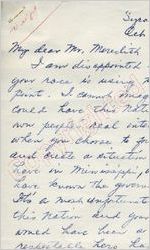 My dear Mr. Meredith
I am disappointed
your race is using
print. I cannot imag
could have this Nat
own people's real inter
when you choose to fo
and create a situation
have in Mississippi,
have known the govern
It's a most unfortunat
this Nation and your
would have been a
respectable here ha